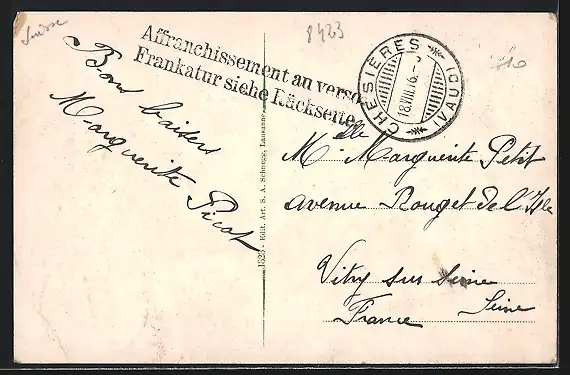 Suisse
8423
Affranchissement au verso
Frankatur siehe Rückseite
CHESIÈRES (VAUD)
18.VIII.16.-5
Bons baisers
Marguerite Picot
1523 - Edit. Art. S. A. Schnegg, Lausanne
Melle Marguerite Petit
avenue Rouget de l'Isle
Vitry sur Seine
Seine
France